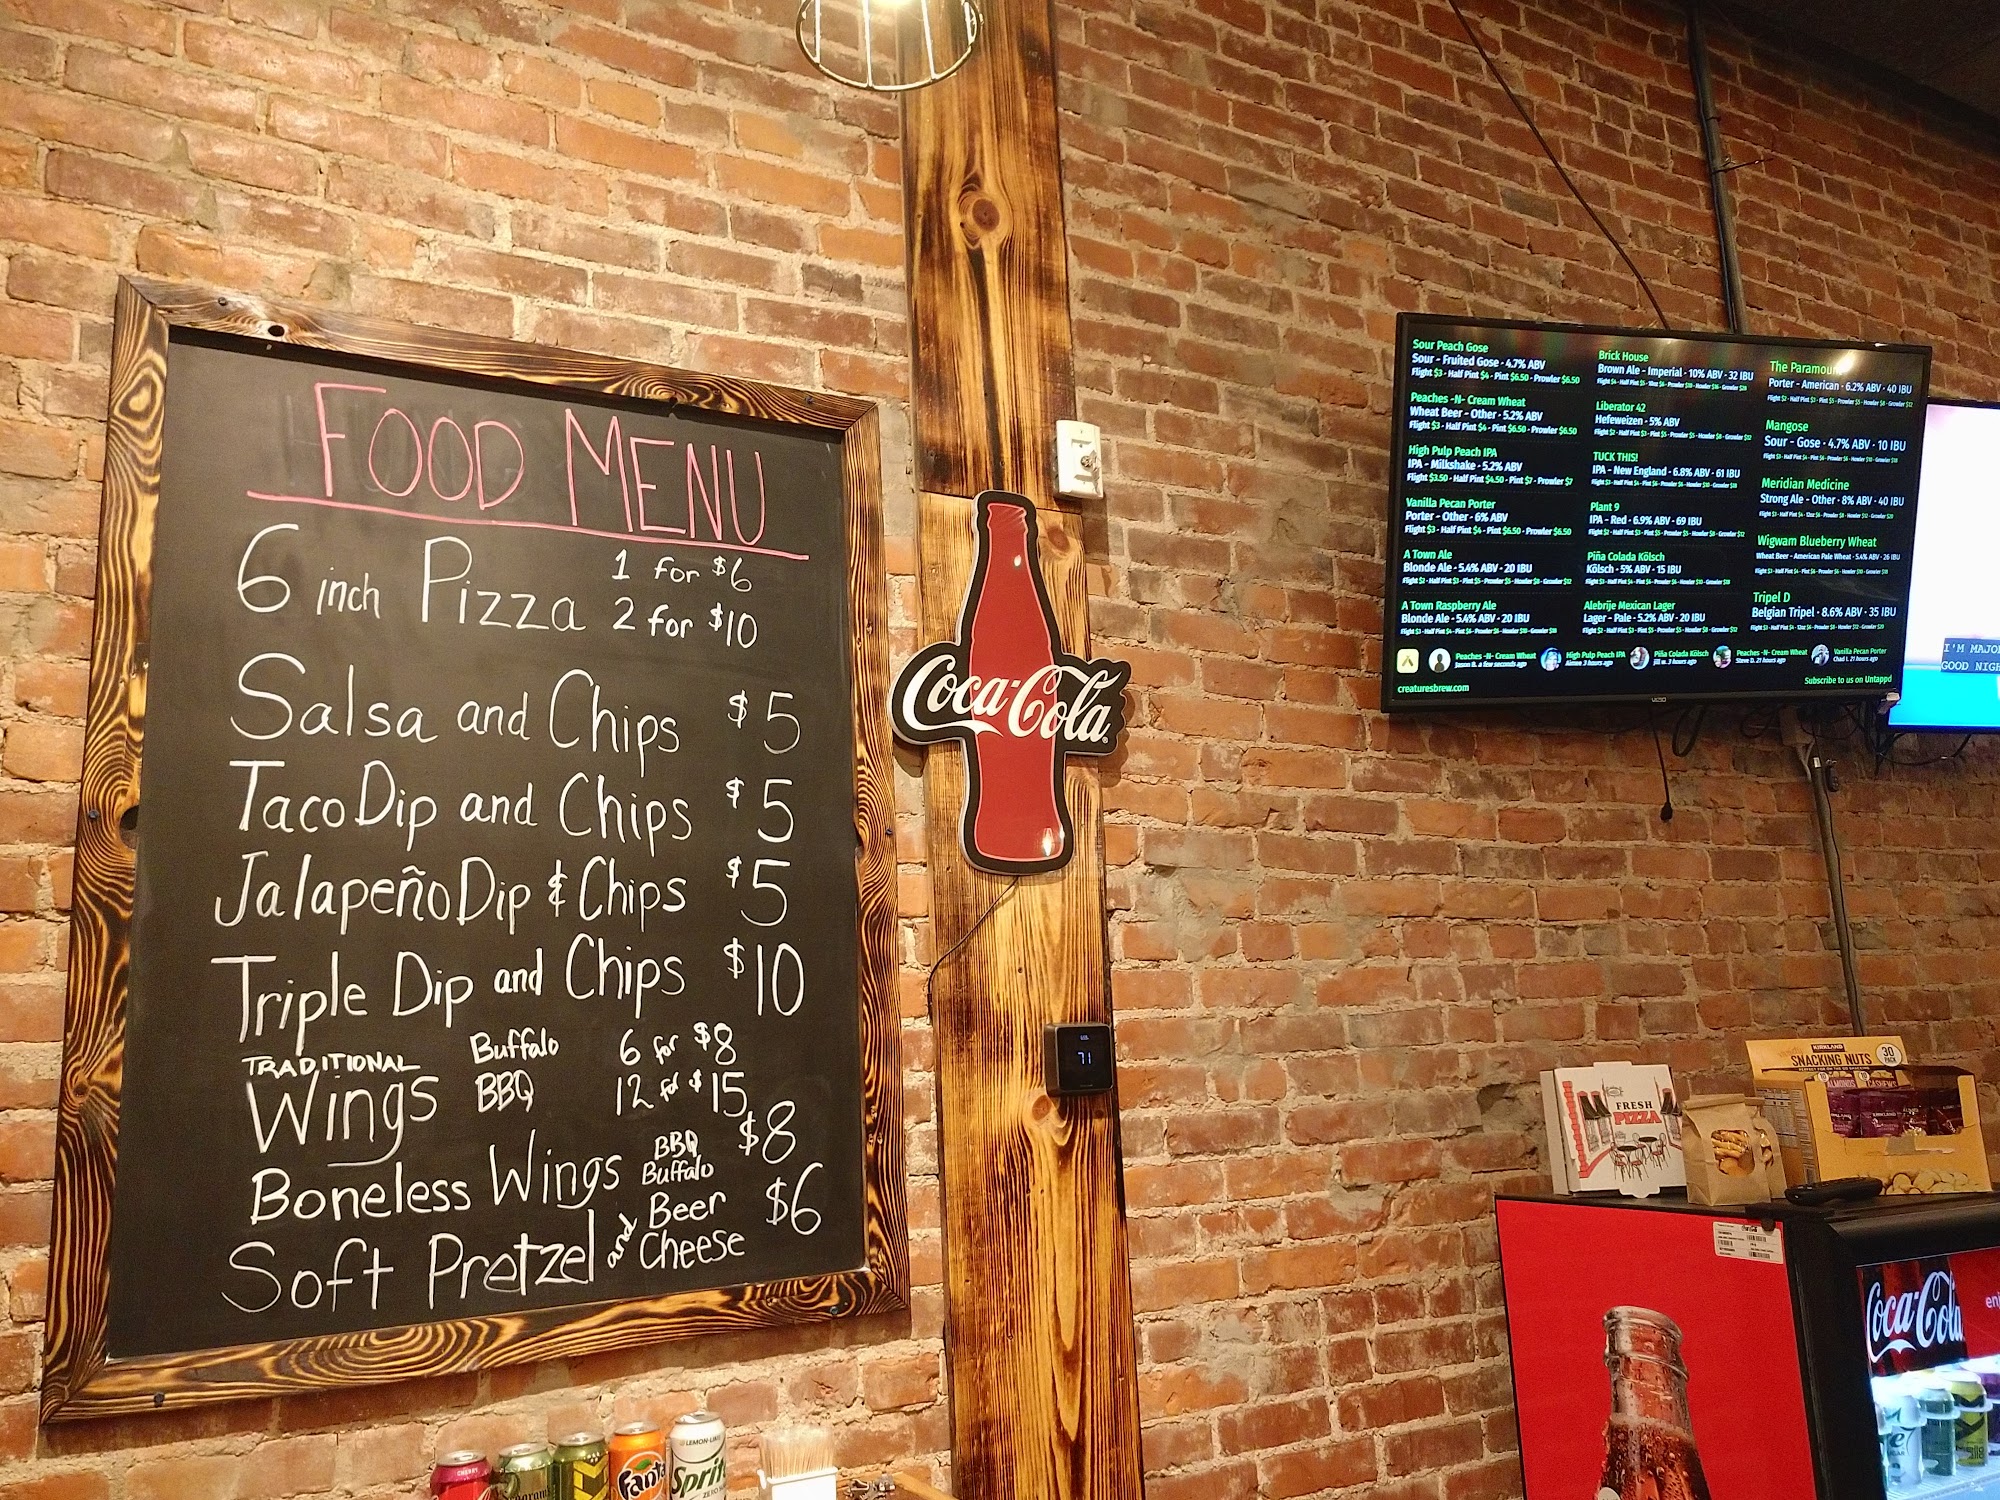 FOOD MENU
6 inch Pizza 1 for $6
2 for $10
Salsa and Chips $5
Taco Dip and Chips $5
Jalapeño Dip & Chips $5
Triple Dip and Chips $10
TRADITIONAL Wings Buffalo BBQ 6 for $8
12 for $15
Boneless Wings BBQ Buffalo $8
Soft Pretzel and Beer Cheese $6
Coca-Cola
71
Sour Peach Gose
Sour - Fruited Gose - 4.7% ABV
Flight $3 - Half Pint $4 - Pint $6.50 - Prowler $6.50
Peaches -N- Cream Wheat
Wheat Beer - Other - 5.2% ABV
Flight $3 - Half Pint $4 - Pint $6.50 - Prowler $6.50
High Pulp Peach IPA
IPA - Milkshake - 5.2% ABV
Flight $3.50 - Half Pint $4.50 - Pint $7 - Prowler $7
Vanilla Pecan Porter
Porter - Other - 6% ABV
Flight $3 - Half Pint $4 - Pint $6.50 - Prowler $6.50
A Town Ale
Blonde Ale - 5.4% ABV - 20 IBU
A Town Raspberry Ale
Blonde Ale - 5.4% ABV - 20 IBU
Brick House
Brown Ale - Imperial - 10% ABV - 32 IBU
Liberator 42
Hefeweizen - 5% ABV
TUCK THIS!
IPA - New England - 6.8% ABV - 61 IBU
Plant 9
IPA - Red - 6.9% ABV - 69 IBU
Piña Colada Kölsch
Kölsch - 5% ABV - 15 IBU
Alebrije Mexican Lager
Lager - Pale - 5.2% ABV - 20 IBU
The Paramount
Porter - American - 6.2% ABV - 40 IBU
Mangose
Sour - Gose - 4.7% ABV - 10 IBU
Meridian Medicine
Strong Ale - Other - 8% ABV - 40 IBU
Wigwam Blueberry Wheat
Wheat Beer - American Pale Wheat - 5.4% ABV - 26 IBU
Tripel D
Belgian Tripel - 8.6% ABV - 35 IBU
Peaches -N- Cream Wheat
Jason B. a few seconds ago
High Pulp Peach IPA
Aimee 3 hours ago
Piña Colada Kölsch
Jill w. 3 hours ago
Peaches -N- Cream Wheat
Steve D. 21 hours ago
Vanilla Pecan Porter
Chad I. 21 hours ago
creaturesbrew.com
Subscribe to us on Untappd
VIZIO
I'M MAJO
GOOD NIGH
FRESH
PIZZA
KIRKLAND
SNACKING NUTS
30
PACK
ALMONDS
CASHEWS
Coca-Cola
enj
CHERRY
Seagram's
Fanta
LEMON-LIME
Sprite
ZERO